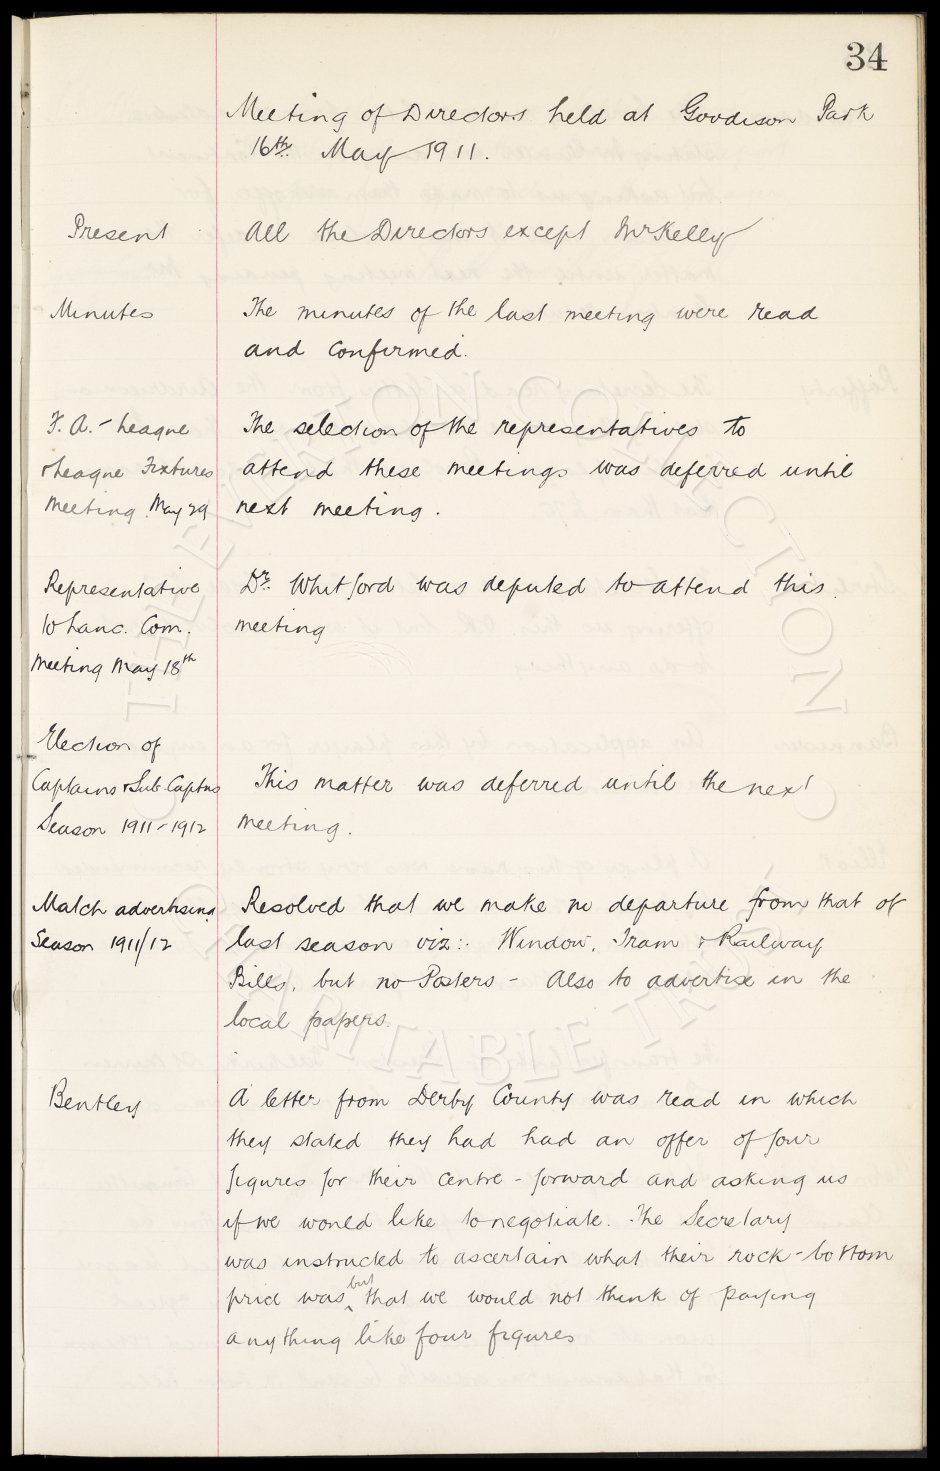 34
Meeting of Directors held at Goodison Park
16th May 1911.
Present
All the Directors except Mr Kelly
Minutes
The minutes of the last meeting were read
and confirmed.
F. A. - League
& League Fixtures
Meeting May 29
The selection of the representatives to
attend these meetings was deferred until
next meeting.
Representative
to Lanc. Com.
Meeting May 18th
Dr. Whitford was deputed to attend this
meeting
Election of
Captains & Sub-Captns
Season 1911-1912
This matter was deferred until the next
meeting.
Match advertising
Season 1911/12
Resolved that we make no departure from that of
last season viz:- Window, Tram & Railway
Bills, but no Posters - Also to advertise in the
local papers.
Bentley
A letter from Derby County was read in which
they stated they had had an offer of four
figures for their centre-forward and asking us
if we would like to negotiate. The Secretary
was instructed to ascertain what their rock-bottom
price was but that we would not think of paying
anything like four figures
THE EVERTON COLLECTION
CHARITABLE TRUST